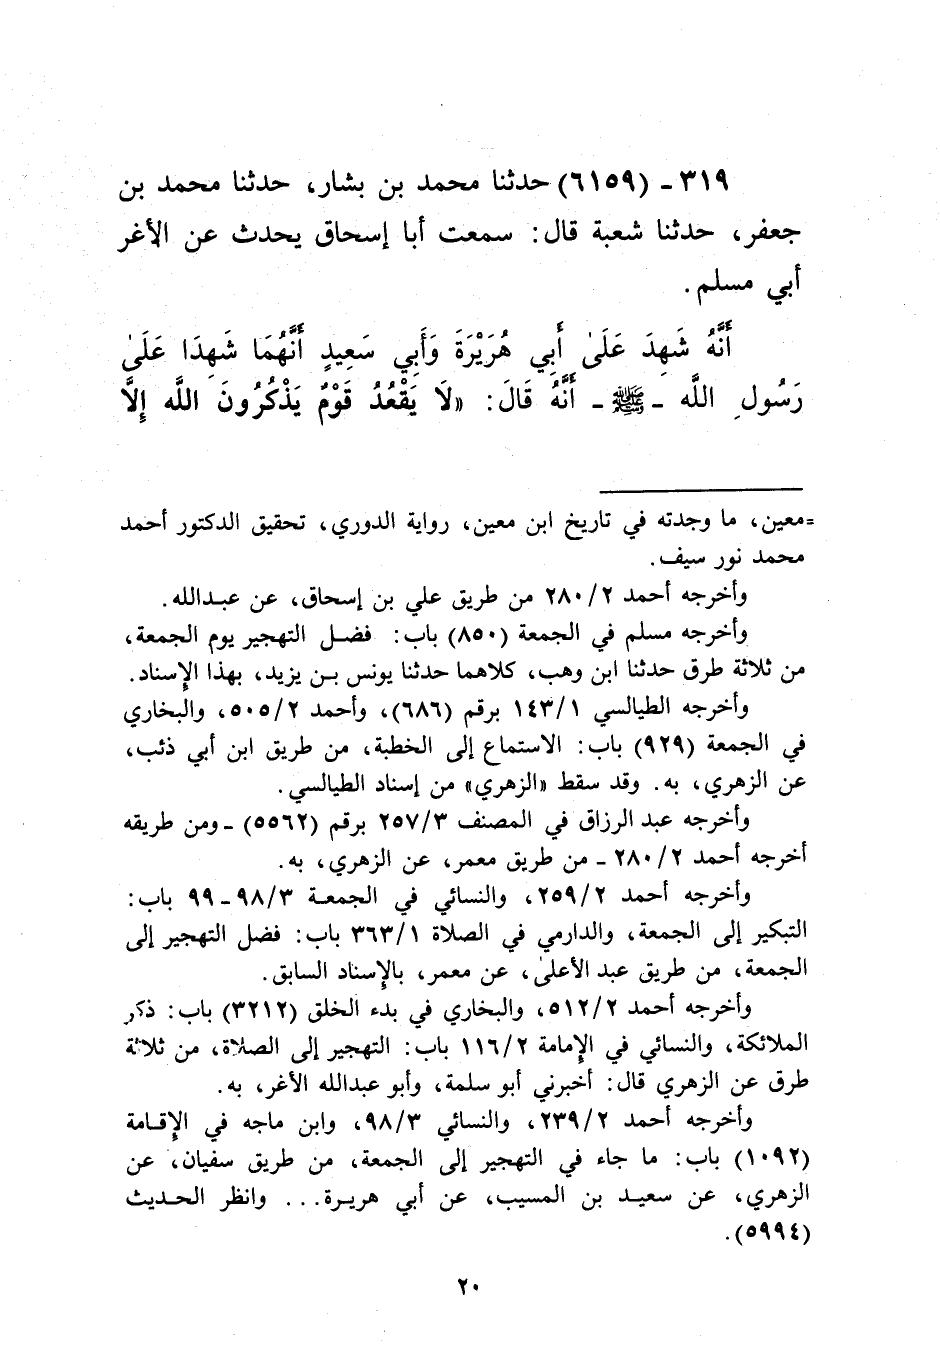 ٣١٩ - (٦١٥٩) حدثنا محمد بن بشار، حدثنا محمد بن
جعفر، حدثنا شعبة قال: سمعت أبا إسحاق يحدث عن الأغر
أبي مسلم.
أَنَّهُ شَهِدَ عَلَىٰ أَبِي هُرَيْرَةَ وَأَبِي سَعِيدٍ أَنَّهُمَا شَهِدَا عَلَىٰ
رَسُولِ اللَّه - ﷺ - أَنَّهُ قَالَ: «لَا يَقْعُدُ قَوْمٌ يَذْكُرُونَ اللَّه إِلاَّ
=معين، ما وجدته في تاريخ ابن معين، رواية الدوري، تحقيق الدكتور أحمد
محمد نور سيف.
وأخرجه أحمد ٢/ ٢٨٠ من طريق علي بن إسحاق، عن عبدالله.
وأخرجه مسلم في الجمعة (٨٥٠) باب: فضل التهجير يوم الجمعة،
من ثلاثة طرق حدثنا ابن وهب، كلاهما حدثنا يونس بن يزيد، بهذا الإسناد.
وأخرجه الطيالسي ١/ ١٤٣ برقم (٦٨٦)، وأحمد ٢/ ٥٠٥، والبخاري
في الجمعة (٩٢٩) باب: الاستماع إلى الخطبة، من طريق ابن أبي ذئب،
عن الزهري، به. وقد سقط «الزهري» من إسناد الطيالسي.
وأخرجه عبد الرزاق في المصنف ٣/ ٢٥٧ برقم (٥٥٦٢) - ومن طريقه
أخرجه أحمد ٢/ ٢٨٠ - من طريق معمر، عن الزهري، به.
وأخرجه أحمد ٢/ ٢٥٩، والنسائي في الجمعة ٣/ ٩٨ - ٩٩ باب:
التبكير إلى الجمعة، والدارمي في الصلاة ١/ ٣٦٣ باب: فضل التهجير إلى
الجمعة، من طريق عبد الأعلىٰ، عن معمر، بالإسناد السابق.
وأخرجه أحمد ٢/ ٥١٢، والبخاري في بدء الخلق (٣٢١٢) باب: ذكر
الملائكة، والنسائي في الإمامة ٢/ ١١٦ باب: التهجير إلى الصلاة، من ثلاثة
طرق عن الزهري قال: أخبرني أبو سلمة، وأبو عبدالله الأغر، به.
وأخرجه أحمد ٢/ ٢٣٩، والنسائي ٣/ ٩٨، وابن ماجه في الإقامة
(١٠٩٢) باب: ما جاء في التهجير إلى الجمعة، من طريق سفيان، عن
الزهري، عن سعيد بن المسيب، عن أبي هريرة... وانظر الحديث
(٥٩٩٤).
٢٠